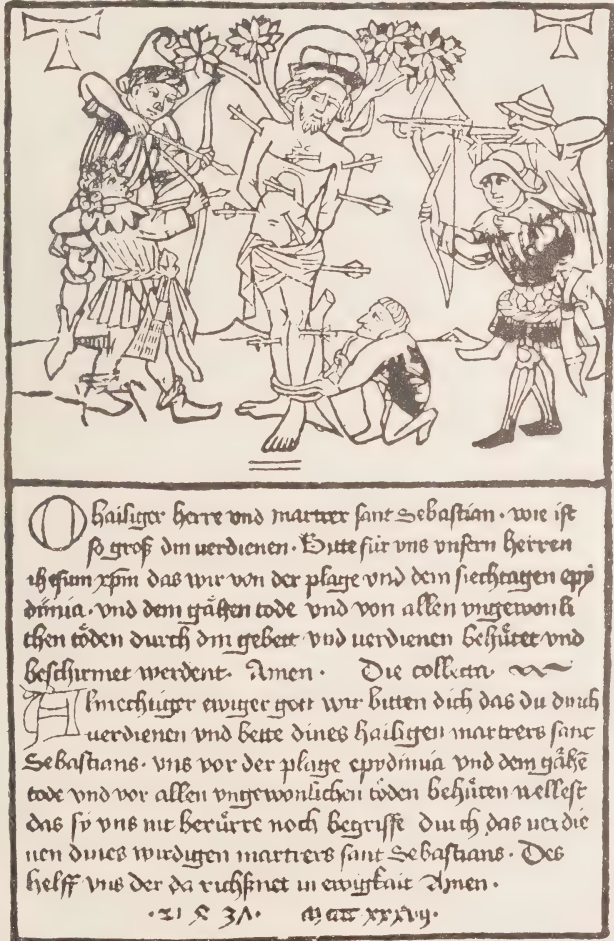 O hailiger herre vnd martrer sant Sebastian · wie ist
so groß din uerdienen · Bitte für vns vnsern herren
ihesum xp̄m das wir von der plage vnd dem siechtagen epy
dimia · vnd dem gåhen tode vnd von allen vngewonli
chen tŏden durch din gebett vnd uerdienen behu̇tet vnd
beschirmet werdent · Amen · Die collecta
Almechtiger ewiger gott wir bitten dich das du durch
uerdienen vnd bette dines hailigen martrers sant
Sebastians · vns vor der plage epydimia vnd dem gåhē
tode vnd vor allen vngewonlichen tŏden behůten wellest
das sy vns nit berůrre noch begriffe durch das uerdie
nen dines wirdigen martrers sant Sebastians · Des
helff vns der da richßnet in ewigkait Amen ·
xxxvij ·